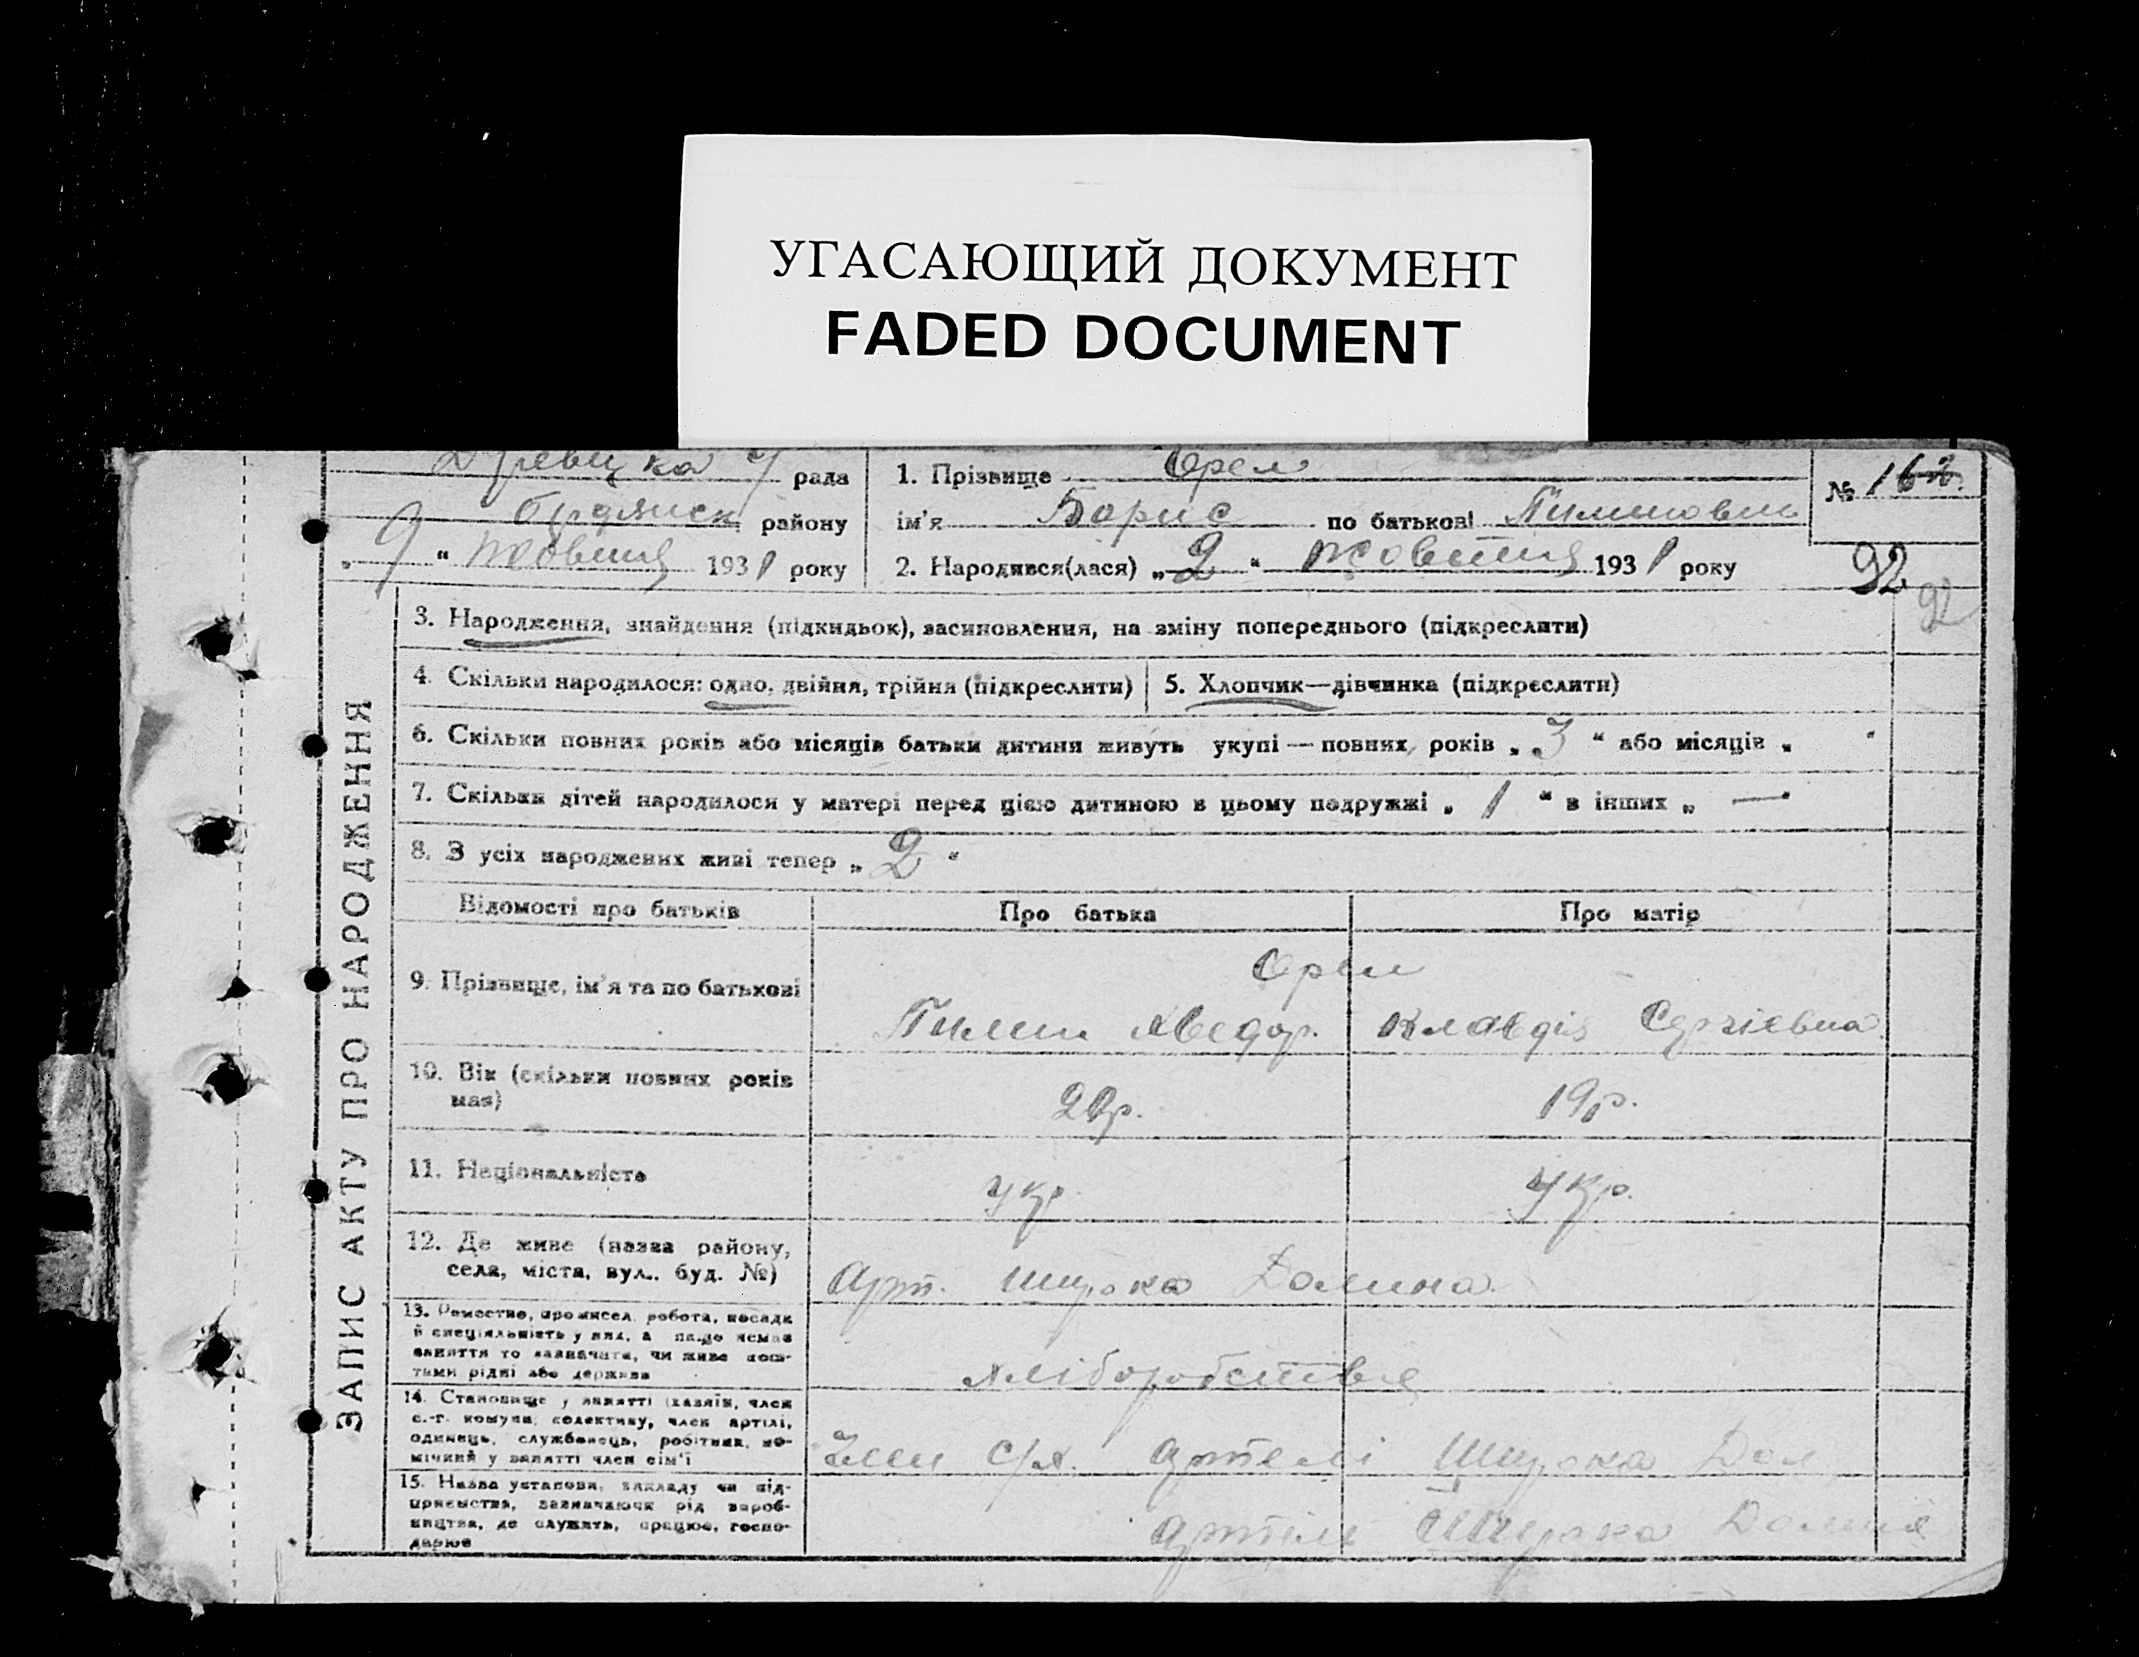 УГАСАЮЩИЙ ДОКУМЕНТ
FADED DOCUMENT
рада
району
„ 9 “ Жовтня 1931 року
1. Прізвище Орел
ім'я Борис по батькові Пилипович
2. Народився(лася) „ 2 “ Жовтня 1931 року
№ 16
92
92
ЗАПИС АКТУ ПРО НАРОДЖЕННЯ
3. Народження, знайдення (підкидьок), засиновлення, на зміну попереднього (підкреслити)
4. Скільки народилося: одно, двійня, трійня (підкреслити)
5. Хлопчик—дівчинка (підкреслити)
6. Скільки повних років або місяців батьки дитини живуть укупі — повних років „ 3 “ або місяців „ “
7. Скільки дітей народилося у матері перед цією дитиною в цьому подружжі „ 1 “ в інших „ — “
8. З усіх народжених живі тепер „ 2 “
Відомості про батьків
Про батька
Про матір
9. Прізвище, ім'я та по батькові
Орел
Пилип Хведор.
Клавдія Сергіевна
10. Вік (скільки повних років
має)
19р.
11. Національність
Укр.
Укр.
12. Де живе (назва району,
села, міста, вул., буд. №)
Арт. Широка Долина
13. Ремество, промисел, робота, посада
й спеціяльність у них, а якщо немає
заняття то зазначити, чи живе кош-
тами рідні або держави
хліборобство
14. Становище у занятті (хазяїн, член
с.-г. комуни, колективу, член артілі,
одинець, службовець, робітник, по-
мічний у занятті член сім'ї
Член с/х. артелі Широка Дол
15. Назва установи, закладу чи під-
приємства, зазначаючи рід вироб-
ництва, де служить, працює, госпо-
дарює
артель Широка Долина